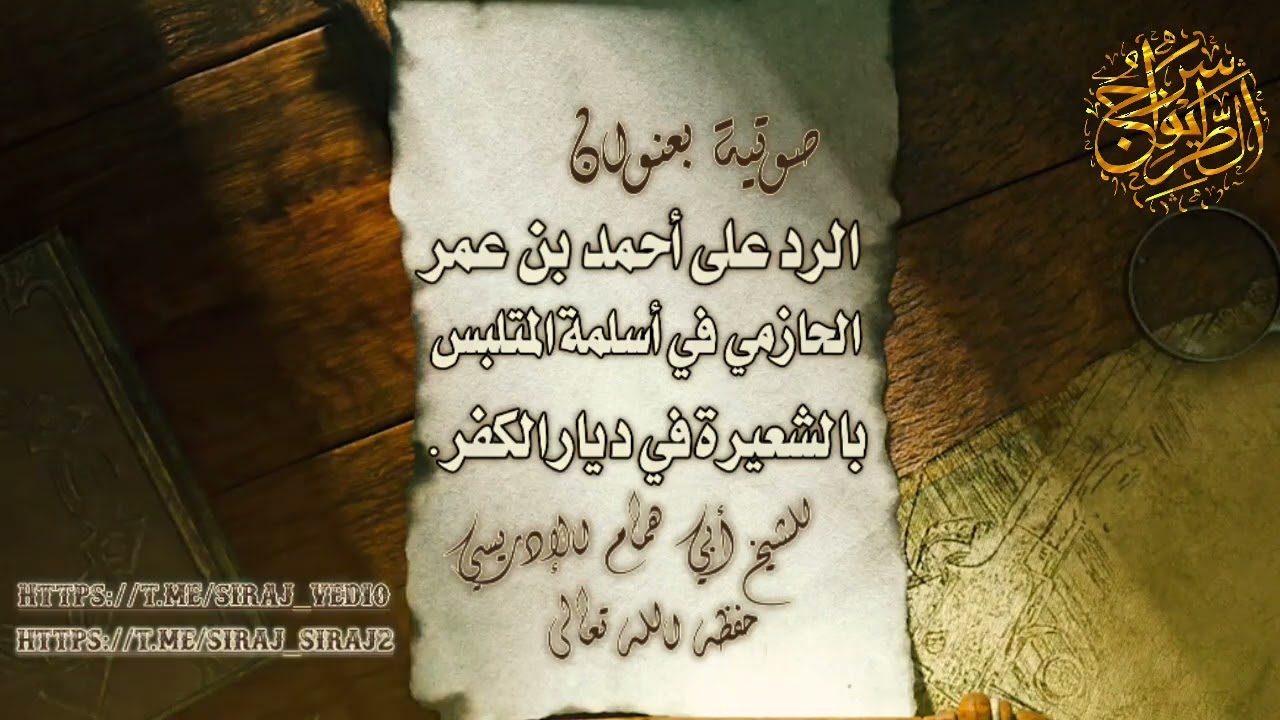 سراج الطريق
صوتية بعنوان
الرد على أحمد بن عمر
الحازمي في أسلمة المتلبس
بالشعيرة في ديار الكفر.
للشيخ أبي همام الإدريسي
حفظه الله تعالى
HTTPS://T.ME/SIRAJ_VEDIO
HTTPS://T.ME/SIRAJ_SIRAJ2